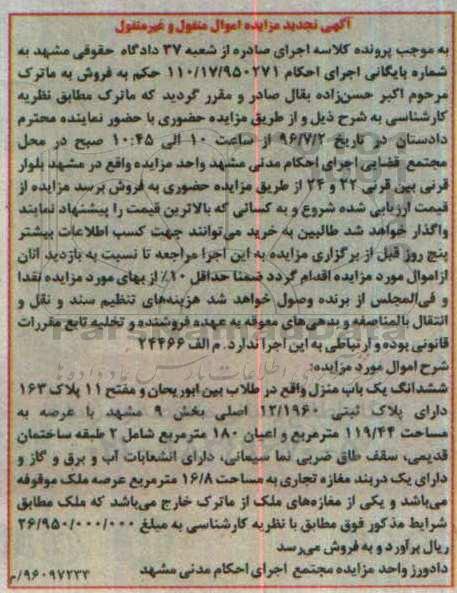 آگهی تجدید مزایده اموال منقول و غیرمنقول
به موجب پرونده کلاسه اجرای صادره از شعبه ۳۷ دادگاه حقوقی مشهد به
شماره بایگانی اجرای احکام ۱۱۰/۱۷/۹۵۰۲۷۱ حکم به فروش به ماترک
مرحوم اکبر حسن‌زاده بقال صادر و مقرر گردید که ماترک مطابق نظریه
کارشناسی به شرح ذیل و از طریق مزایده حضوری با حضور نماینده محترم
دادستان در تاریخ ۹۶/۷/۲ از ساعت ۱۰ الی ۱۰:۴۵ صبح در محل
مجتمع قضایی اجرای احکام مدنی مشهد واحد مزایده واقع در مشهد بلوار
قرنی بین قرنی ۲۲ و ۲۴ از طریق مزایده حضوری به فروش برسد مزایده از
قیمت ارزیابی شده شروع و به کسانی که بالاترین قیمت را پیشنهاد نمایند
واگذار خواهد شد طالبین به خرید می‌توانند جهت کسب اطلاعات بیشتر
پنج روز قبل از برگزاری مزایده به این اجرا مراجعه تا نسبت به بازدید آنان
ازاموال مورد مزایده اقدام گردد ضمنا حداقل ۱۰٪ از بهای مورد مزایده نقدا
و فی‌المجلس از برنده وصول خواهد شد هزینه‌های تنظیم سند و نقل و
انتقال بالمناصفه و بدهی‌های معوقه به عهده فروشنده و تخلیه تابع مقررات
قانونی بوده و ارتباطی به این اجرا ندارد. م الف ۲۴۴۶۶
شرح اموال مورد مزایده:
ششدانگ یک باب منزل واقع در طلاب بین ابوریحان و مفتح ۱۱ پلاک ۱۶۳
دارای پلاک ثبتی ۱۲/۱۹۶۰ اصلی بخش ۹ مشهد با عرصه به
مساحت ۱۱۹/۴۴ مترمربع و اعیان ۱۸۰ مترمربع شامل ۲ طبقه ساختمان
قدیمی، سقف طاق ضربی نما سیمانی، دارای انشعابات آب و برق و گاز و
دارای یک دربند مغازه تجاری به مساحت ۱۶/۸ مترمربع عرصه ملک موقوفه
می‌باشد و یکی از مغازه‌های ملک از ماترک خارج می‌باشد که ملک مطابق
شرایط مذکور فوق مطابق با نظریه کارشناسی به مبلغ ۲۶/۹۵۰/۰۰۰/۰۰۰
ریال برآورد و به فروش می‌رسد
دادورز واحد مزایده مجتمع اجرای احکام مدنی مشهد
۹۶۰۹۷۲۳۳/م